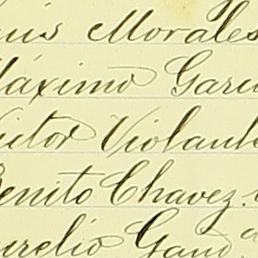 Luis Morales
Máximo Garci
Victor Violante
Benito Chavez.
Aurelio Gand